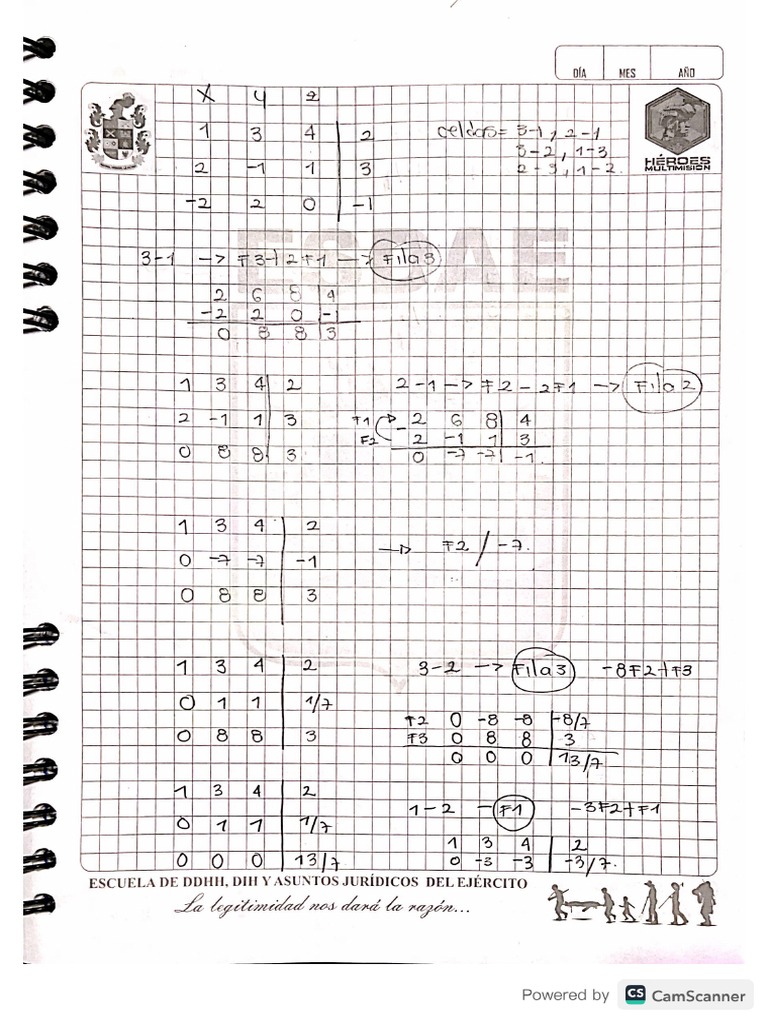 DÍA MES AÑO
X Y Z
1 3 4 | 2
2 -1 1 | 3
-2 2 0 | -1
celdas= 3-1, 2-1
3-2, 1-3
2-3, 1-2
HÉROES
MULTIMISIÓN
ESDAE
3-1 → F3+2F1 → Fila3
2 6 8 | 4
-2 2 0 | -1
0 8 8 | 3
1 3 4 | 2
2 -1 1 | 3
0 8 8 | 3
2-1 → F2-2F1 → Fila2
F1 - 2 6 8 | 4
F2 2 -1 1 | 3
0 -7 -7 | -1
1 3 4 | 2
0 -7 -7 | -1
0 8 8 | 3
→ F2 / -7.
1 3 4 | 2
0 1 1 | 1/7
0 8 8 | 3
3-2 → Fila3 -8F2+F3
F2 0 -8 -8 | -8/7
F3 0 8 8 | 3
0 0 0 | 13/7
1 3 4 | 2
0 1 1 | 1/7
0 0 0 | 13/7
1-2 - F1 -3F2+F1
1 3 4 | 2
0 -3 -3 | -3/7.
ESCUELA DE DDHH, DIH Y ASUNTOS JURÍDICOS DEL EJÉRCITO
La legitimidad nos dará la razón...
Powered by CS CamScanner